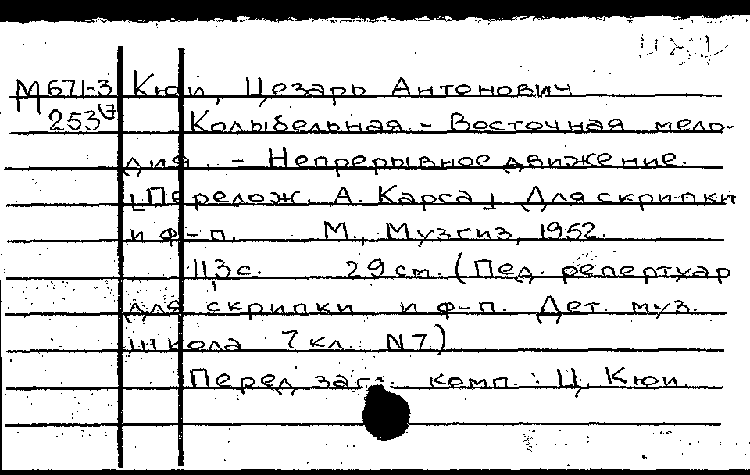 М671-3 Кюи, Цезарь Антонович
253 Колыбельная. - Восточная мело-
дия. - Непрерывное движение.
[Перелож. А. Карса] Для скрипки
и ф-п. М., Музгиз, 1952.
11,3 с. 29 см. (Пед. репертуар
для скрипки и ф-п. Дет. муз.
школа 7 кл. N7)
Перед загл. комп.: Ц. Кюи